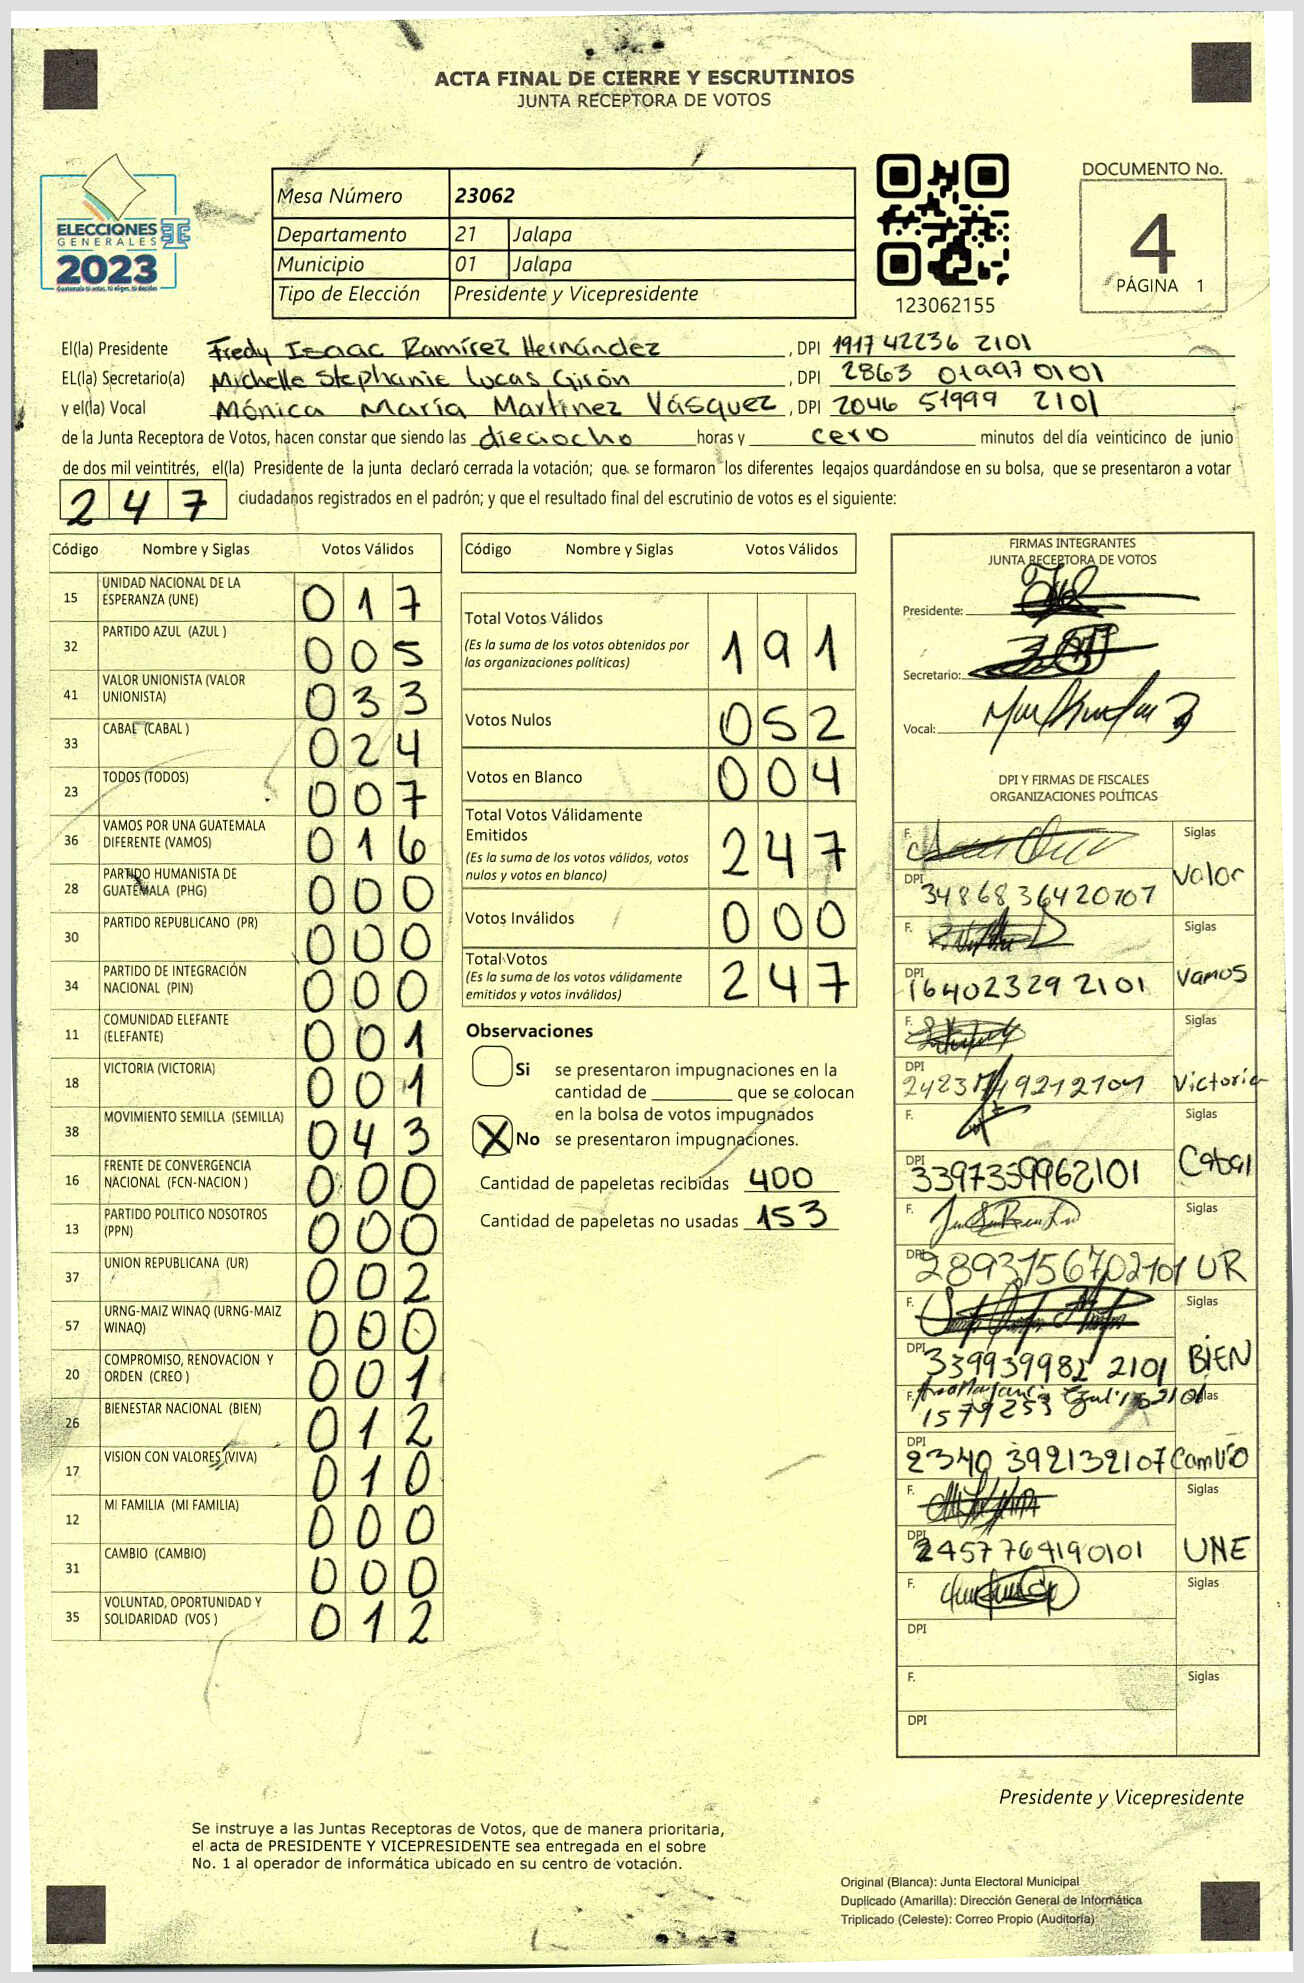 ACTA FINAL DE CIERRE Y ESCRUTINIOS
JUNTA RECEPTORA DE VOTOS
ELECCIONES
GENERALES
2023
Mesa Número 23062
Departamento 21 Jalapa
Municipio 01 Jalapa
Tipo de Elección Presidente y Vicepresidente
123062155
DOCUMENTO No.
4
PÁGINA 1
El(la) Presidente Fredy Isaac Ramírez Hernández, DPI 1917 42236 2101
EL(la) Secretario(a) Michelle Stephanie Lucas Girón, DPI 2863 01997 0101
y el(la) Vocal Mónica María Martínez Vásquez, DPI 2046 51999 2101
de la Junta Receptora de Votos, hacen constar que siendo las dieciocho horas y cero minutos del día veinticinco de junio
de dos mil veintitrés, el(la) Presidente de la junta declaró cerrada la votación; que se formaron los diferentes legajos guardándose en su bolsa, que se presentaron a votar
247 ciudadanos registrados en el padrón; y que el resultado final del escrutinio de votos es el siguiente:
Código Nombre y Siglas Votos Válidos
15 UNIDAD NACIONAL DE LA
ESPERANZA (UNE) 017
32 PARTIDO AZUL (AZUL ) 005
41 VALOR UNIONISTA (VALOR
UNIONISTA) 033
33 CABAL (CABAL ) 024
23 TODOS (TODOS) 007
36 VAMOS POR UNA GUATEMALA
DIFERENTE (VAMOS) 016
28 PARTIDO HUMANISTA DE
GUATEMALA (PHG) 000
30 PARTIDO REPUBLICANO (PR) 000
34 PARTIDO DE INTEGRACIÓN
NACIONAL (PIN) 000
11 COMUNIDAD ELEFANTE
(ELEFANTE) 001
18 VICTORIA (VICTORIA) 001
38 MOVIMIENTO SEMILLA (SEMILLA) 043
16 FRENTE DE CONVERGENCIA
NACIONAL (FCN-NACION ) 000
13 PARTIDO POLITICO NOSOTROS
(PPN) 000
37 UNION REPUBLICANA (UR) 002
57 URNG-MAIZ WINAQ (URNG-MAIZ
WINAQ) 000
20 COMPROMISO, RENOVACION Y
ORDEN (CREO ) 001
26 BIENESTAR NACIONAL (BIEN) 012
17 VISION CON VALORES (VIVA) 010
12 MI FAMILIA (MI FAMILIA) 000
31 CAMBIO (CAMBIO) 000
35 VOLUNTAD, OPORTUNIDAD Y
SOLIDARIDAD (VOS ) 012
Código Nombre y Siglas Votos Válidos
Total Votos Válidos 191
(Es la suma de los votos obtenidos por
las organizaciones políticas)
Votos Nulos 052
Votos en Blanco 004
Total Votos Válidamente
Emitidos 247
(Es la suma de los votos válidos, votos
nulos y votos en blanco)
Votos Inválidos 000
Total Votos 247
(Es la suma de los votos válidamente
emitidos y votos inválidos)
Observaciones
Si se presentaron impugnaciones en la
cantidad de ________ que se colocan
en la bolsa de votos impugnados
X No se presentaron impugnaciones.
Cantidad de papeletas recibidas 400
Cantidad de papeletas no usadas 153
FIRMAS INTEGRANTES
JUNTA RECEPTORA DE VOTOS
Presidente:
Secretario:
Vocal:
DPI Y FIRMAS DE FISCALES
ORGANIZACIONES POLÍTICAS
F. Siglas
DPI 3486836420707 Valor
F. Siglas
DPI 16402329 2101 Vamos
F. Siglas
DPI Victoria
F. Siglas
DPI 3397359962101 Cabal
F. Siglas
DPI 2893156702101 UR
F. Siglas
DPI 339939982 2101 BIEN
F. Siglas
DPI 2340 392132107 Cambio
F. Siglas
DPI 2457764190101 UNE
F. Siglas
DPI
F. Siglas
DPI
Presidente y Vicepresidente
Se instruye a las Juntas Receptoras de Votos, que de manera prioritaria,
el acta de PRESIDENTE Y VICEPRESIDENTE sea entregada en el sobre
No. 1 al operador de informática ubicado en su centro de votación.
Original (Blanca): Junta Electoral Municipal
Duplicado (Amarilla): Dirección General de Informática
Triplicado (Celeste): Correo Propio (Auditoría)